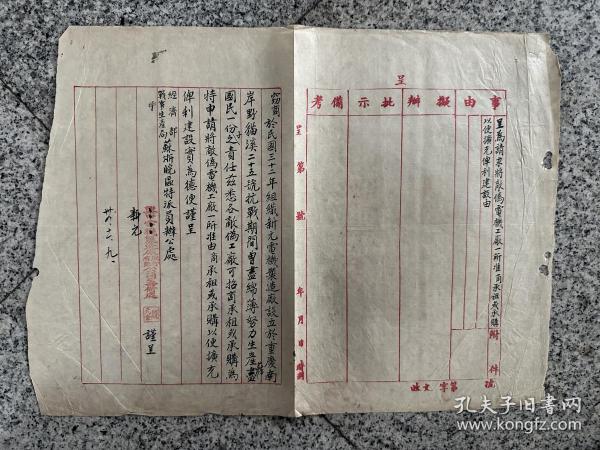 呈
事由 擬辦 批示 備考
呈為請求將敵偽電機工廠一所准由商承租或承購
以便擴充俾利建設由
附件
號
字第
收文
呈 第 號
年 月 日 時
竊商於民國三十二年組織新元電機製造廠設立於重慶南
岸野貓溪二十五號抗戰期間曾盡綿薄努力生產盡
國民一份之責任茲悉各敵偽工廠可招商承租或承購為
特申請將敵偽電機工廠一所准由商承租或承購以便擴充
俾利建設實為德便謹呈
經濟部
戰時生產局
蘇浙皖區特派員辦公處
新元
謹呈
孔夫子旧书网
www.kongfz.com